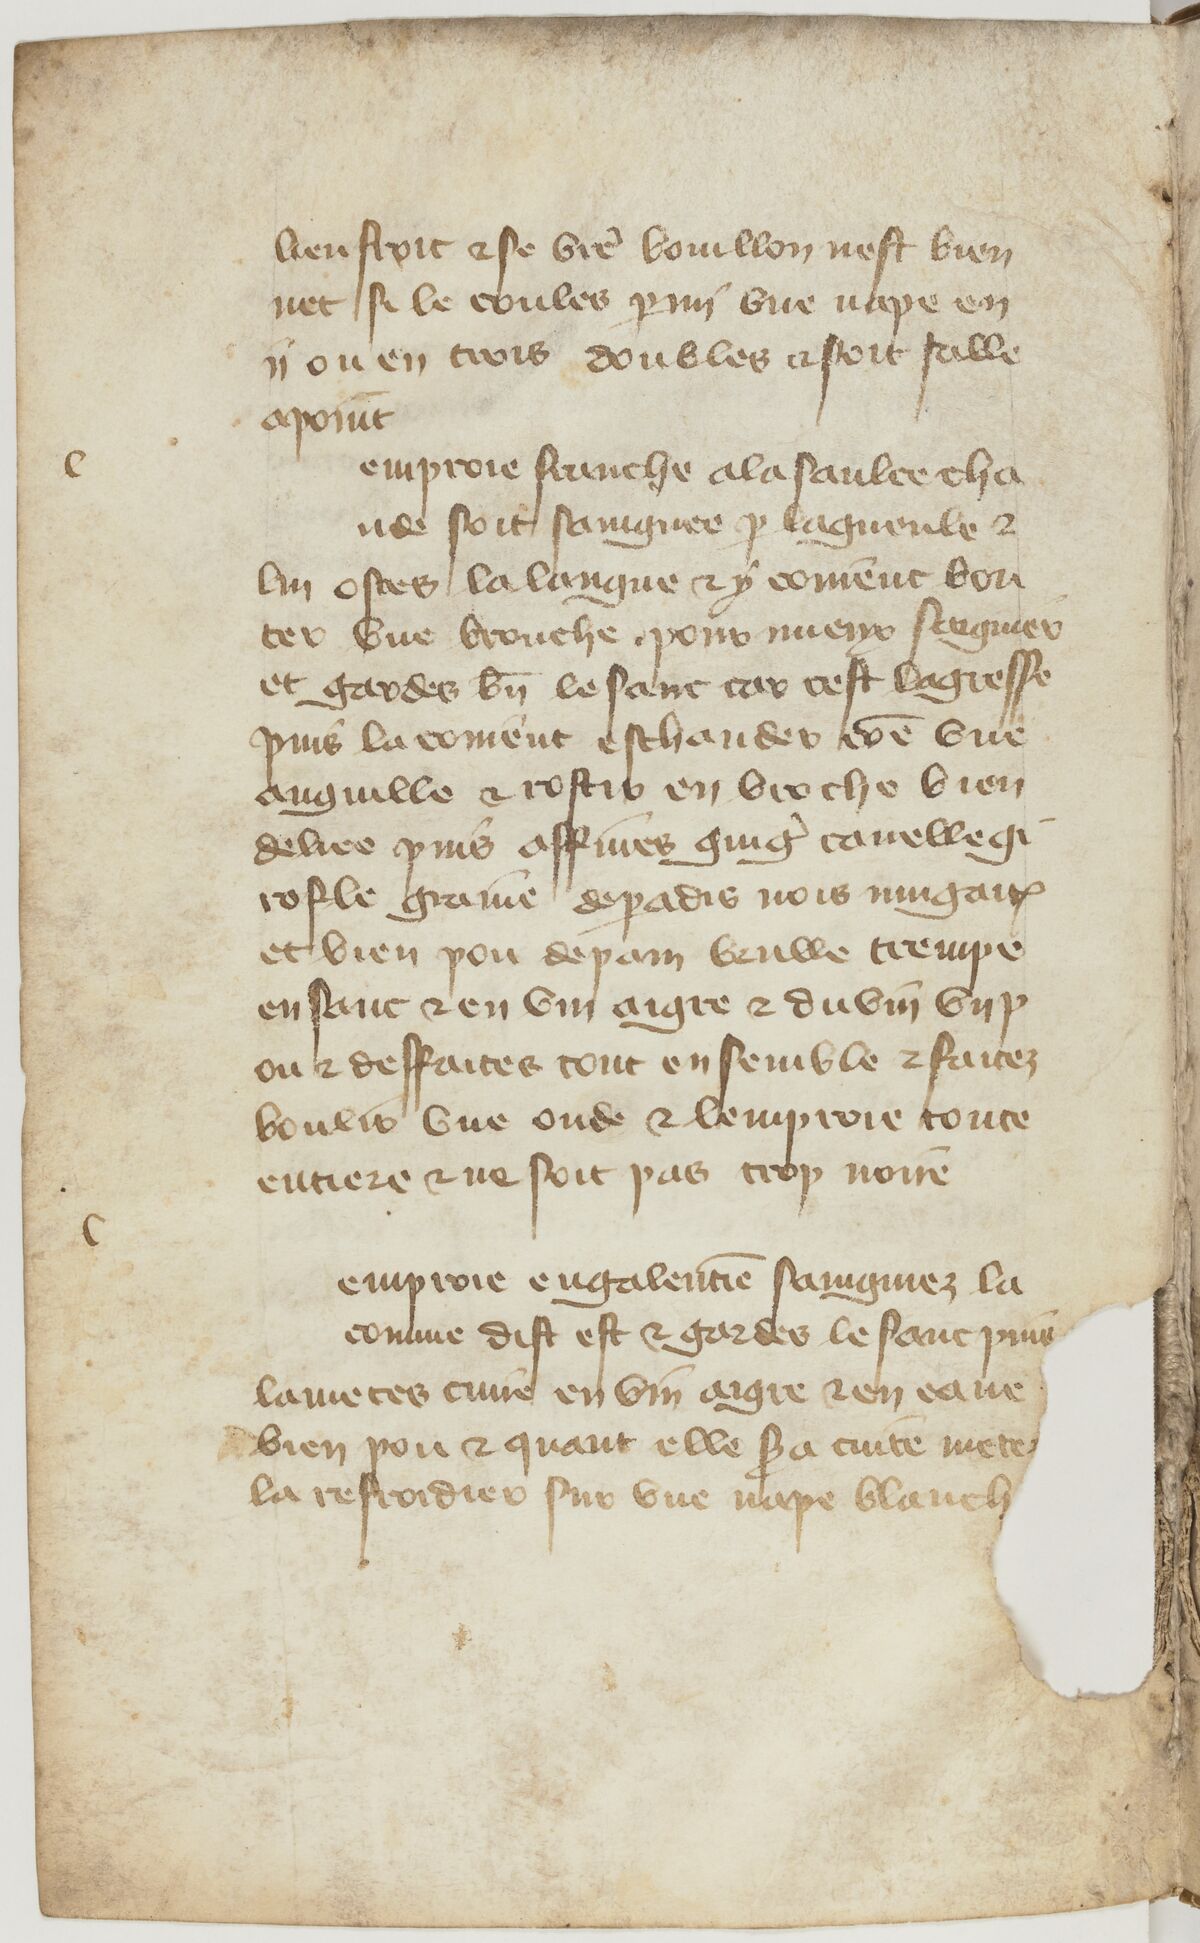 lieu froit & se vr̃e bouillon nest bien
net si le coules p̲mi vne nape en
ij ou en trois doubles & soit salle
apoint̃
emproie franche ala saulce cha
ude soit saingnee p̲ lagueule &
lui ostes la langue & y conuient bou
ter vne brouche pour mieux saignier
et gardes bñ le sanc car cest lagresse
puis la conuient eschauder cõe vne
anguille & rostir en broche bien
deliee puis affines ging̃ canelle gi
rofle graine dep̲adis nois mugaites
et bien pou depain brulle trempe
en sanc & en vin aigre & du vin vn p
ou & deffaites tout ensemble & faitez
boulir vne onde & lemproie toute
entiere & ne soit pas trop noire
emproie engalentiẽ saingniez la
comme dist est & gardes le sanc puis
lametes cuire en vin aigre & en eaue
bien pou & quant elle s̃a cuite mete
la refroidier sur vne nape blanch